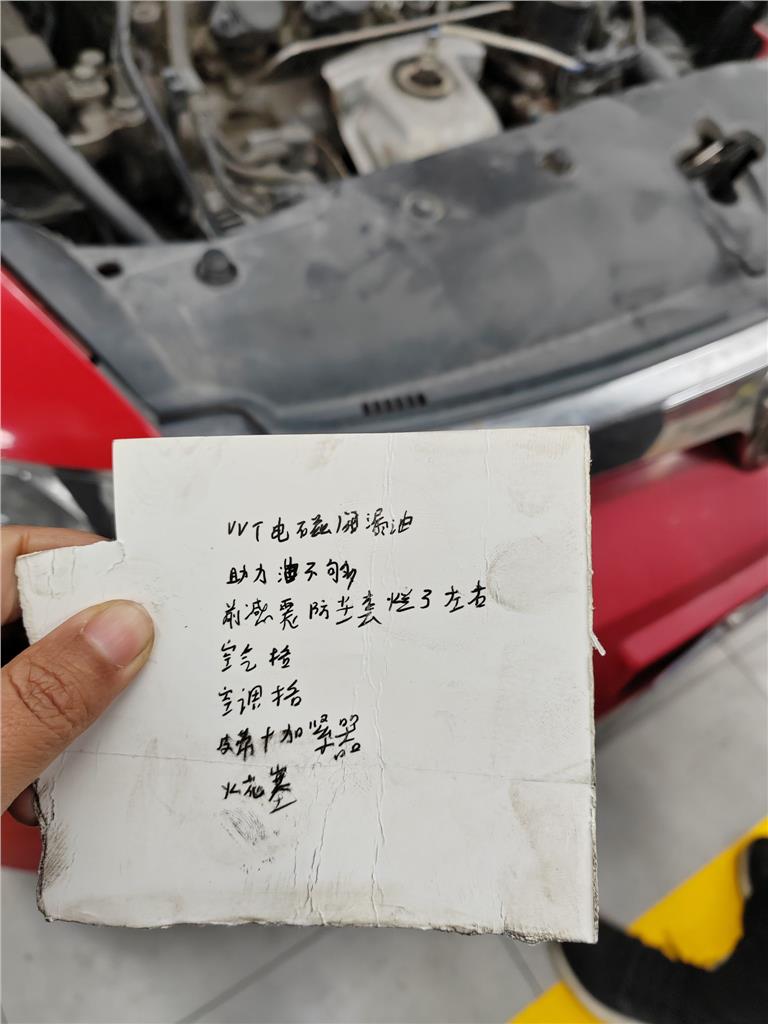 VVT电磁阀漏油
助力油不够
前感震防尘套烂了左右
空气格
空调格
皮带+加紧器
火花塞